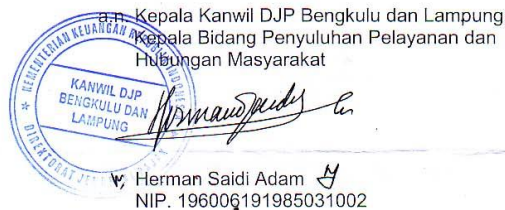 a.n. Kepala Kanwil DJP Bengkulu dan Lampung
Kepala Bidang Penyuluhan Pelayanan dan
Hubungan Masyarakat
KEMENTERIAN KEUANGAN REPUBLIK INDONESIA
KANWIL DJP
BENGKULU DAN
LAMPUNG
DIREKTORAT
Herman Saidi Adam
NIP. 196006191985031002